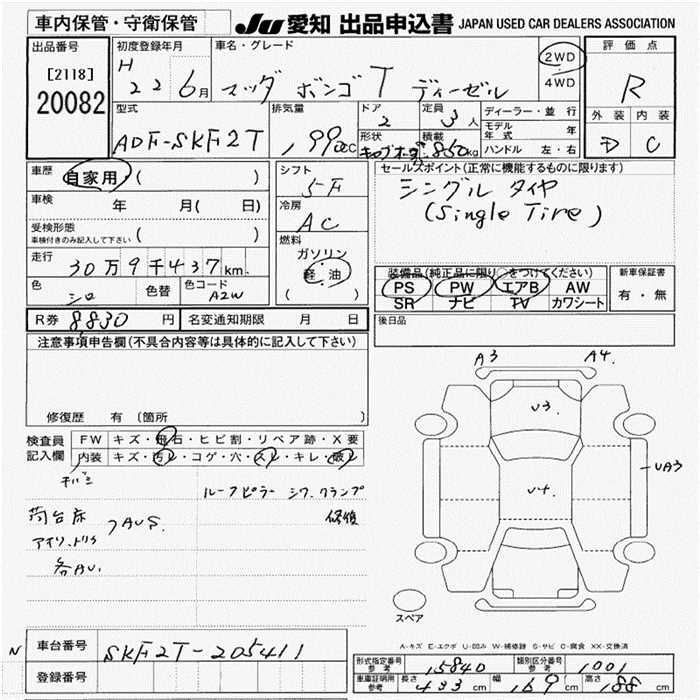 車内保管・守衛保管
JU 愛知 出品申込書 JAPAN USED CAR DEALERS ASSOCIATION
出品番号 初度登録年月 車名・グレード 2WD 4WD 評価点
[2118] H 22 6月 マツダ ボンゴ T ディーゼル R
20082
型式 排気量 ドア 定員 ディーラー・並行 外装 内装
ADF-SKF2T 1,990cc 2 3人 モデル年式 年 D C
形状 積載 850kg ハンドル 左・右
車歴 自家用 ( ) シフト セールスポイント(正常に機能するものに限ります)
5-F シングル タイヤ
車検 年 月( 日) 冷房 (Single Tire)
AC
受検形態 ( )
車検付きのみ記入して下さい
燃料
走行 30万9千437km. ガソリン
軽・油
( )
装備品(純正品に限り○をつけてください) 新車保証書
色 シロ 色替 色コード A2W PS PW エアB AW 有・無
SR ナビ TV カワシート
R券 8830円 名変通知期限 月 日 後日品
注意事項申告欄(不具合内容等は具体的に記入して下さい)
A3 A4.
U3.
修復歴 有 〔箇所 〕
検査員 FW キズ・飛石・ヒビ割・リペア跡・X要
記入欄 内装 キズ・汚レ・コゲ・穴・スレ・キレ・破レ
UA3
U4.
ルーフピラー シワ. クランプ
荷台床 修復
各AU.
スペア
A-キズ E-エクボ U-凹み W-補修跡 S-サビ C-腐食 XX-交換済
N 車台番号 SKF2T-205411
形式指定番号 参考 15840 類別区分番号 参考 1001
登録番号
車庫証明用 参考 長さ 433cm 幅 169cm 高さ 188cm